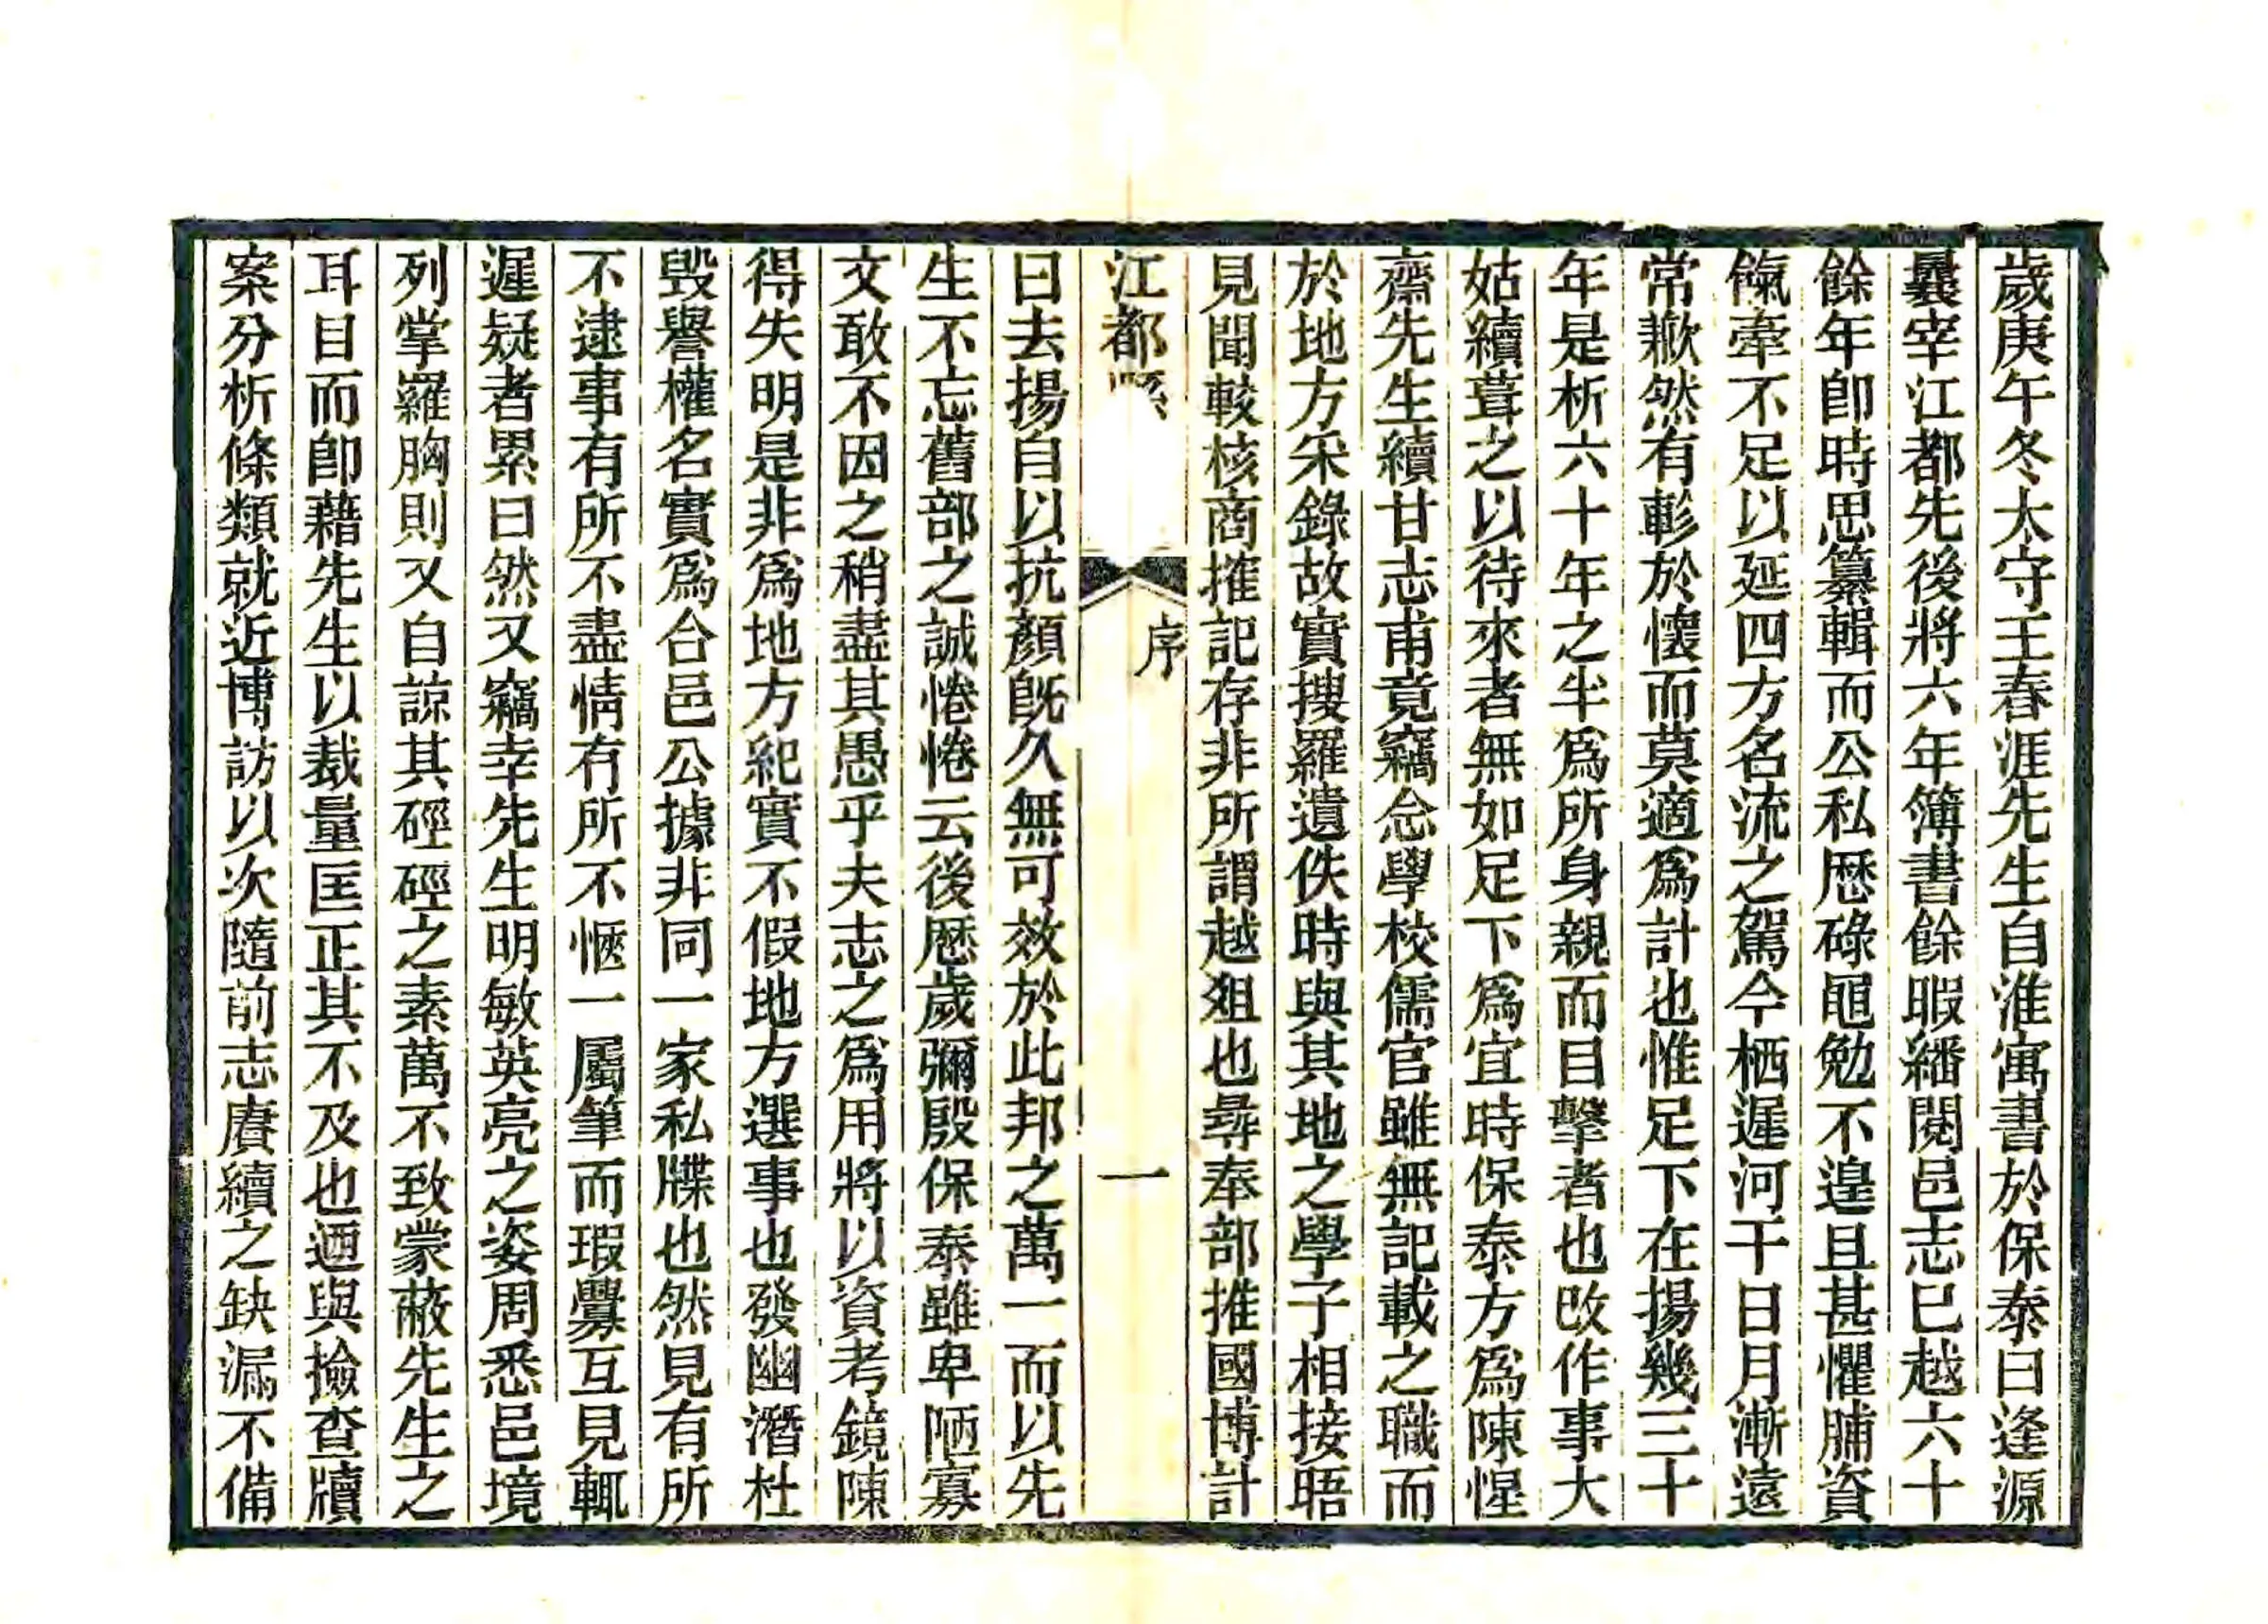 歲庚午冬太守王春涯先生自淮寓書於保泰曰逢源
曩宰江都先後將六年簿書餘暇繙閱邑志已越六十
餘年卽時思纂輯而公私歷碌黽勉不遑且甚懼脯資
餼牽不足以延四方名流之駕今栖遲河干日月漸遠
常歉然有轸於懷而莫適爲計也惟足下在揚幾三十
年是析六十年之半爲所身親而目擊者也改作事大
姑續葺之以待來者無如足下爲宜時保泰方爲陳惺
齋先生續甘志甫竟竊念學校儒官雖無記載之職而
於地方采錄故實搜羅遺佚時與其地之學子相接晤
見聞較核商搉記存非所謂越爼也尋奉部推國博計
江都 序 一
曰去揚自以抗顏旣久無可效於此邦之萬一而以先
生不忘舊部之誠惓惓云後歷歲彌殷保泰雖卑陋寡
文敢不因之稍盡其愚乎夫志之爲用將以資考鏡陳
得失明是非爲地方紀實不假地方選事也發幽潛杜
毁譽權名實爲合邑公據非同一家私牒也然見有所
不逮事有所不盡情有所不愜一屬筆而瑕釁互見輒
遲疑者累日然又竊幸先生明敏英亮之姿周悉邑境
列掌羅胸則又自諒其硜硜之素萬不致蒙蔽先生之
耳目而卽藉先生以裁量匡正其不及也迺與撿查牘
案分析條類就近博訪以次隨前志賡續之缺漏不備